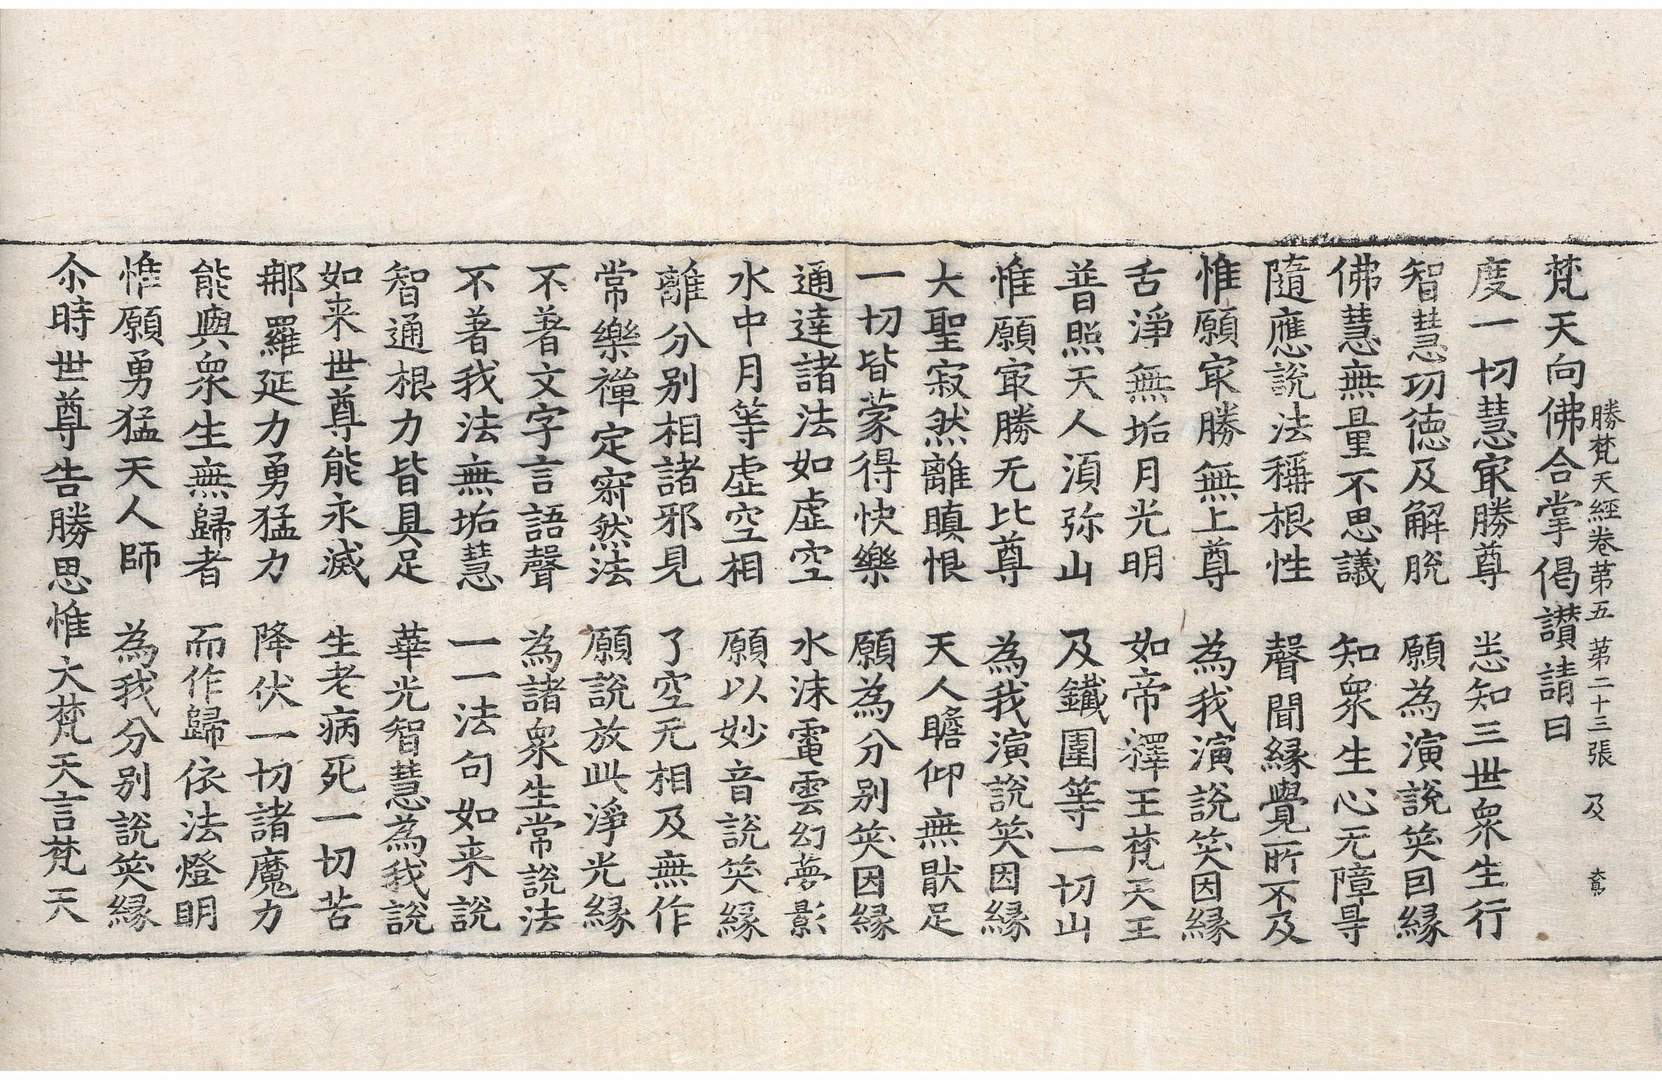 勝梵天經卷第五 第二十三張 及
梵天向佛合掌偈讃請曰
度一切慧㝡勝尊 悉知三世衆生行
智慧功德及解脫 願為演說笑因緣
佛慧無量不思議 知衆生心无障㝵
隨應說法稱根性 聲聞緣覺所不及
惟願㝡勝無上尊 為我演說笑因緣
舌淨無垢月光明 如帝釋王梵天王
普照天人湏弥山 及鐵圍等一切山
惟願㝡勝无比尊 為我演說笑因緣
大聖寂然離瞋恨 天人瞻仰無猒足
一切皆蒙得快樂 願為分別笑因緣
通達諸法如虛空 水沫電雲幻夢影
水中月等虛空相 願以妙音說笑緣
離分別相諸邪見 了空无相及無作
常樂禪定寂然法 願說放此淨光緣
不著文字言語聲 為諸衆生常說法
不著我法無垢慧 一一法句如来說
智通根力皆具足 華光智慧為我說
如来世尊能永滅 生老病死一切苦
那羅延力勇猛力 降伏一切諸魔力
能與衆生無歸者 而作歸依法燈明
惟願勇猛天人師 為我分別說笑緣
尒時世尊告勝思惟大梵天言梵天